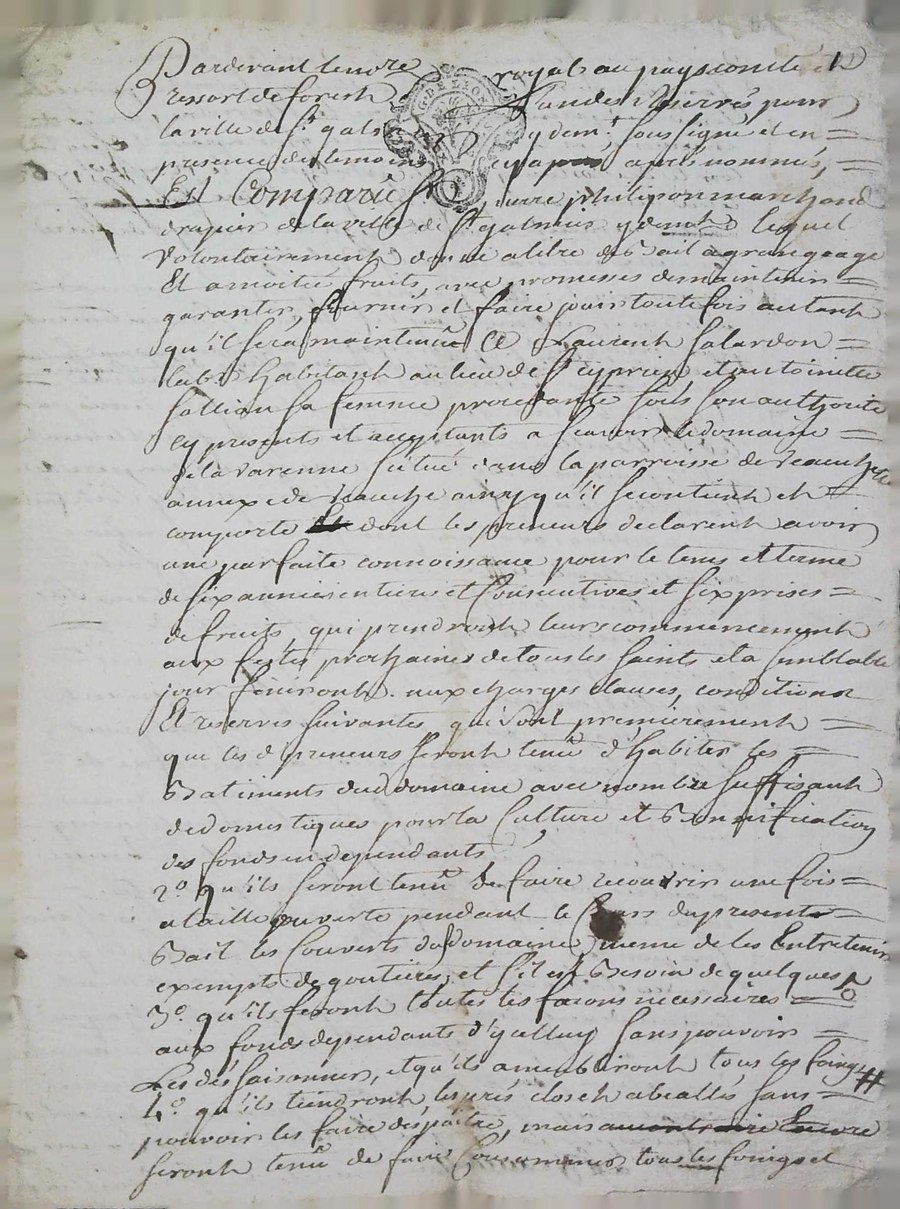 Pardevant le no.re royal au pays comté et
ressort de forest G. DE LYON Landes reservés pour
la ville de St galm y dem.t soussigné et en
presence des temoins apres nommés,
Est Comparu pierre philipon marchand
drapier de la ville de St galmier y demt lequel
volontairement donne a titre de Bail a grangeage
Et a moitié fruits, avec promesses de maintenir
garantir, fournir et faire jouir toutefois autant
qu'il sera maintenu a Laurent salardon
labr habitant au lieu de St cyprien et antoinette
sa femme procedante sous son authorité
cy presents et acceptants a scavoir le domaine
de la varenne scitué dans la parroisse de
annexe de veauche ainsy qu'il se contient et
comporte dont les preneurs declarent avoir
une parfaite connoissance pour le tems et terme
de six années entieres et Consecutives et six prises
de fruits, qui prendront leurs commencement
aux festes prochaines de tous les saints et a semblable
jour finiront. aux charges clauses, conditions
Et reserves suivantes qui sont premierement
que les d preneurs seront tenu d'habiter les
Batiments dud domaine avec nombre suffisant
de domestiques pour la Culture et Bonnification
des fonds en dependants
2.o qu'ils seront tenu de faire recouvrir une fois
a taille ouverte pendant le Cours du present
Bail les Couverts dud domaine meme de les Entretenir
exempts de goutieres, et s'il est Besoin de quelques
3.o qu'ils feront toutes les façons necessaires
aux fonds dependants d'yceluy sans pouvoir
Les dessaisonner, et qu'ils ameubliront tous les foings
4.o qu'ils tiendront les prés clos et abeallés sans
pouvoir les faire despaitre, mais au contraire
seront tenu de faire Consommer tous les foings et